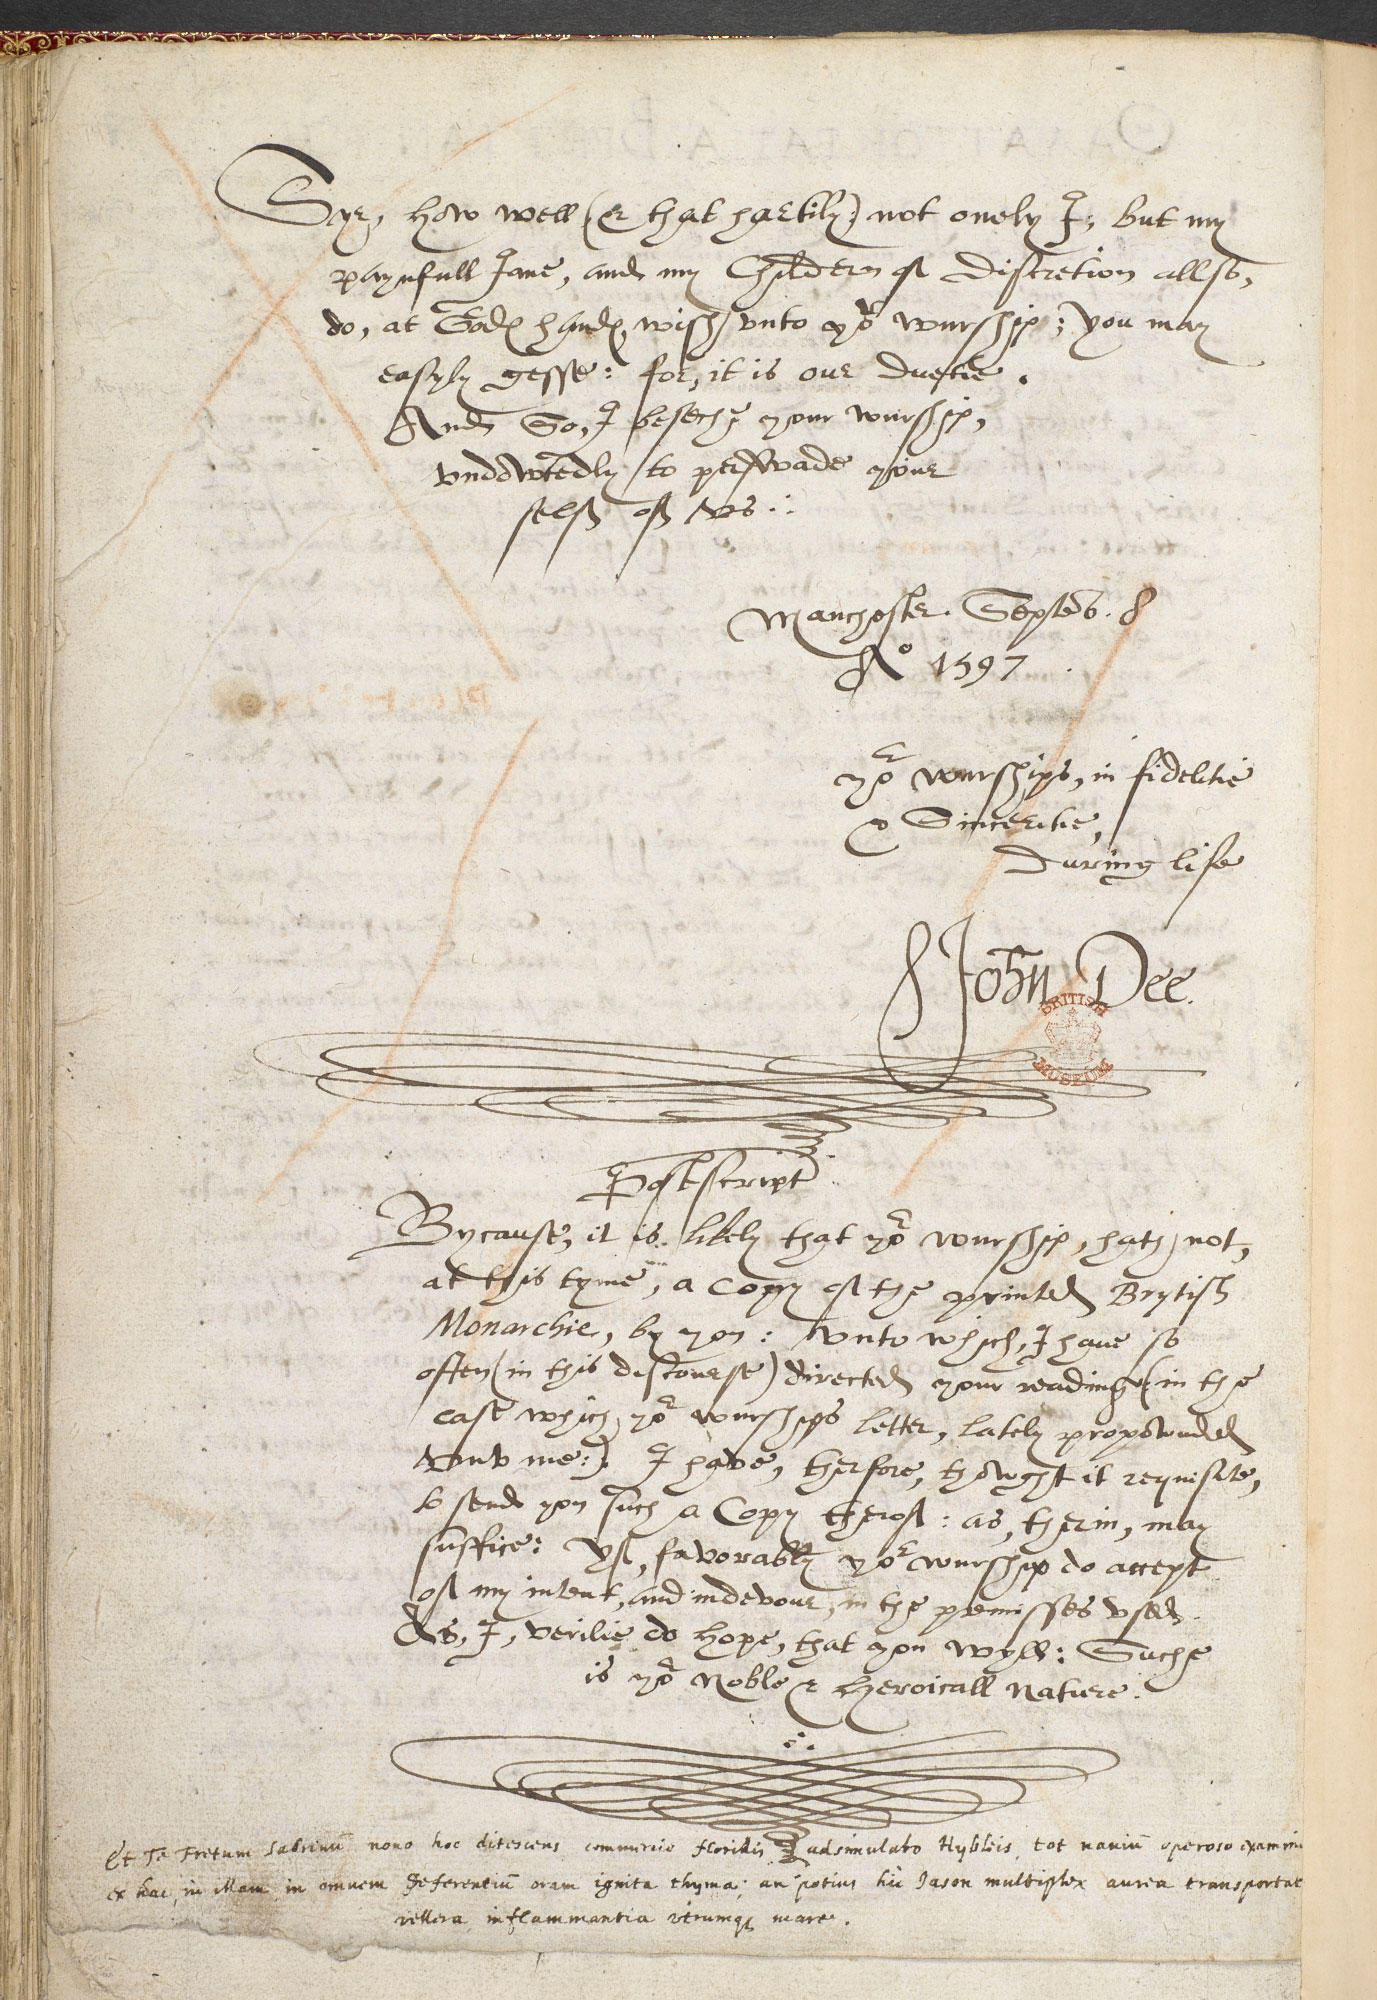 Syr, how well (& that hartily) not onely I, but my
paynfull Jane, and my Childern of discretion allso,
do, at Gods hands, wish vnto yor wurship; you may
easyly gesse: for, it is our duetie.
And So, I beseche your wurship,
vndowtedly to perswade your
self of vs.
Manchester. Septeb. 8
Ao 1597.
yor wurships, in fidelitie
& Sinceritie,
during life
John Dee.
BRITISH
MUSEUM
Postscript.
Bycause, it is likely that yor wurship, hath not,
at this tyme, a Copy of the printed Brytish
Monarchie, by you: vnto which, I haue so
often (in this discourse) directed your reading (in the
case which yor wurships letter, lately propownded
vnto me:) I haue, therfore, thowght it requisite,
to send you such a Copy therof: as, therin, may
suffice: Yf, favorably yor wurship do accept
of my intent, and indevour, in the premisses vsed.
As, I, verilie do hope, that you wyll: Suche
is yor Noble & Heroicall Nature.
Et Fretum Sabrinū nono hoc ditescens commercio floridis adsimulato Hybleis, tot naviū operoso examine
ex hac, in illam in omnem Deferentiū oram ignita thyma; an potius hic Iason multiplex aurea transportat
vellera inflammantia vtrumq mare.